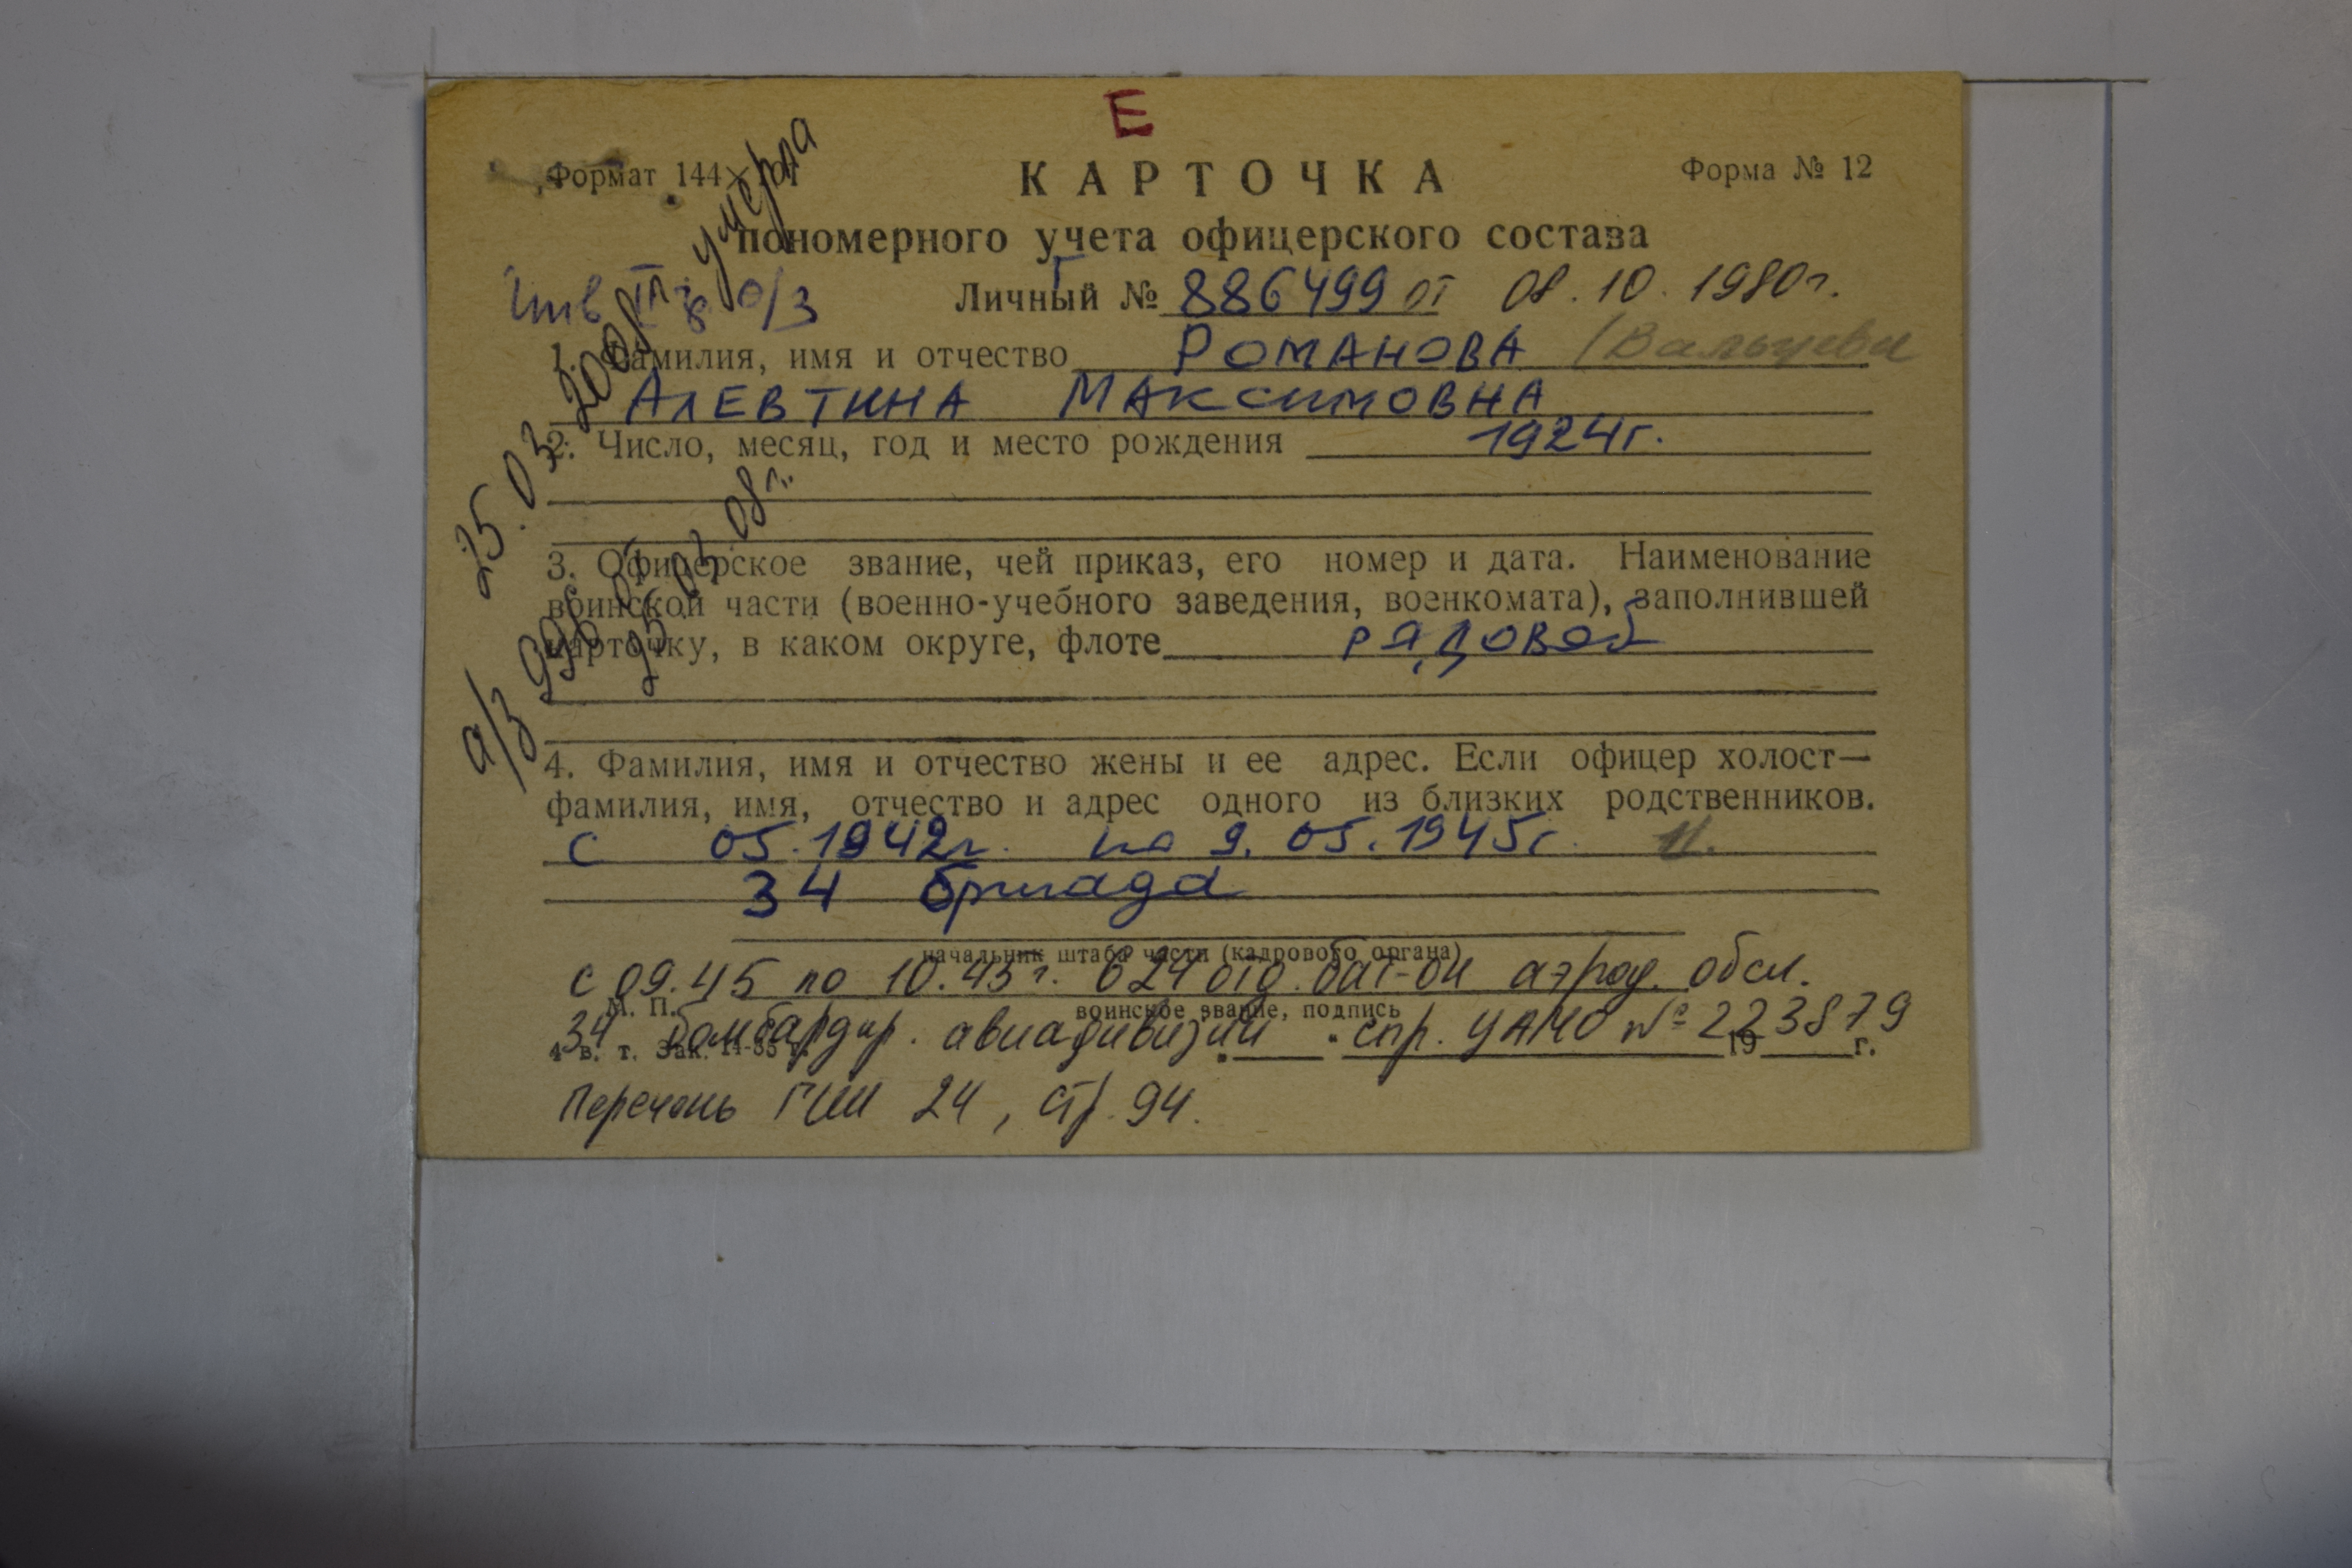 Е
Формат 144×101
КАРТОЧКА
Форма № 12
пономерного учета офицерского состава
Инв II гр o/з
Личный № Г 886499 от 08.10.1980г.
1. Фамилия, имя и отчество РОМАНОВА
АЛЕВТИНА МАКСИМОВНА
2. Число, месяц, год и место рождения 1924г.
3. Офицерское звание, чей приказ, его номер и дата. Наименование
воинской части (военно-учебного заведения, военкомата), заполнившей
карточку, в каком округе, флоте рядовой
4. Фамилия, имя и отчество жены и ее адрес. Если офицер холост—
фамилия, имя, отчество и адрес одного из близких родственников.
с 05.1942г. по 9.05.1945г.
34 бригада
начальник штаба части (кадрового органа)
с 09.45 по 10.45г. 624 отд. бат-он аэрод. обсл.
М. П.
воинское звание, подпись
34 бомбардир. авиадивизии спр. ЦАМО № 223879
4 в. т. Зак. 14-85 г.
19 г.
Перечень ГШ 24, стр. 94.
25.03.2008г. умерла
а/з 996 от
26.03.08г.